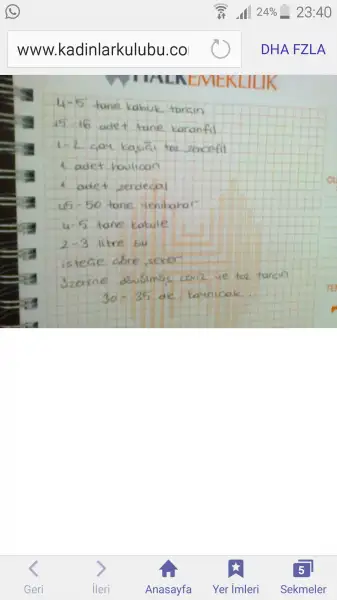 24% 23:40
www.kadinlarkulubu.co DHA FZLA
HALKEMEKLİLİK
4-5 tane kabuk tarçın
15-16 adet tane karanfil
1-2 çay kaşığı toz zencefil
1 adet havlıcan
1 adet zerdeçal
45-50 tane yenibahar
4-5 tane kakule
2-3 litre su
isteğe göre şeker
Üzerine dövülmüş ceviz ve toz tarçın
30-35 dk kaynıcak..
Geri İleri Anasayfa Yer İmleri 5 Sekmeler